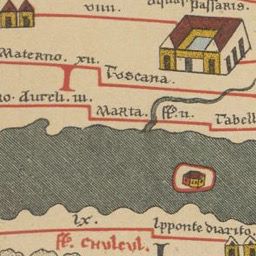 aquas passaris
viiii.
Materno. xii.
Toscana.
no. Aureli. iii.
Marta. fl. ii.
Tabell
ix.
Ipponte diarito.
fl. chulcul.